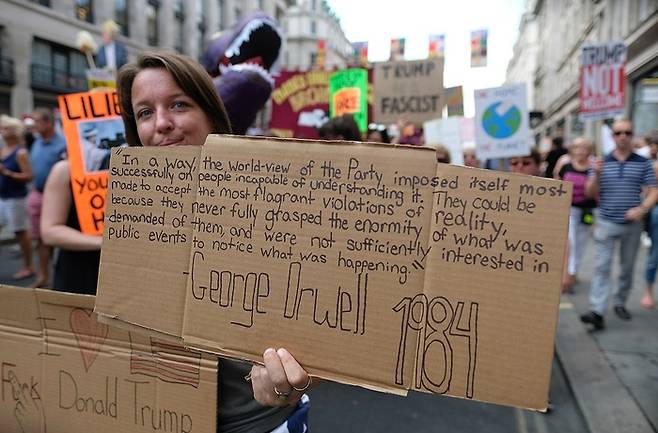 TRUMP
FASCIST
TRUMP
NOT
WELCOME
"In a way, the world-view of the Party imposed itself most
successfully on people incapable of understanding it. They could be
made to accept the most flagrant violations of reality,
because they never fully grasped the enormity of what was
demanded of them, and were not sufficiently interested in
public events to notice what was happening."
-George Orwell
1984
I
Donald Trump